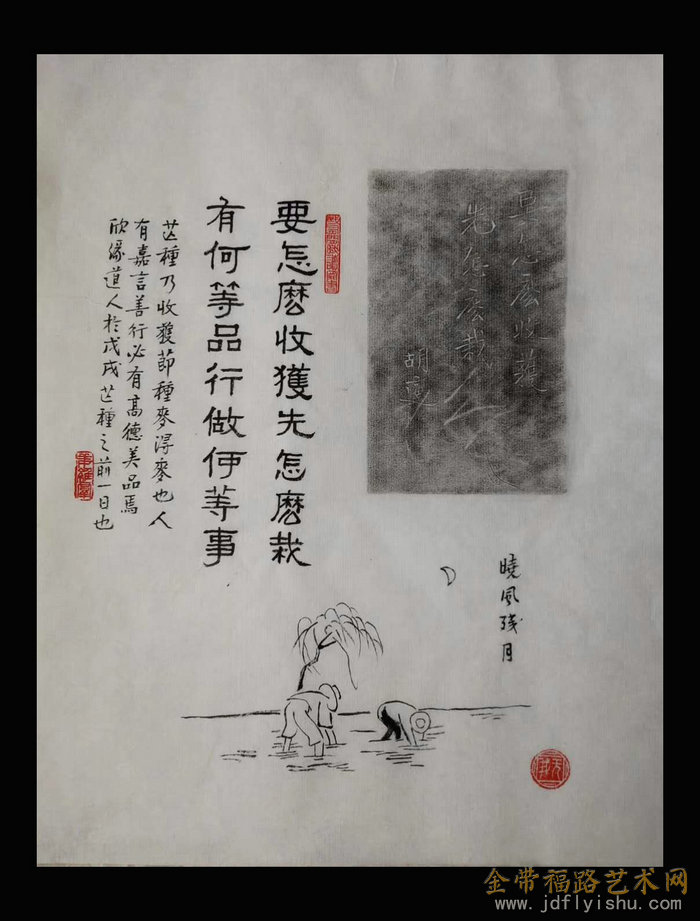 要怎麼收穫
先怎麼栽
胡適
要怎麼收獲先怎麼栽
有何等品行做何等事
芒種乃收獲節種麥得麥也人
有嘉言善行必有高德美品焉
欣緣道人於戊戌芒種之前一日也
曉風残月
金带福路艺术网
www.jdflyishu.com